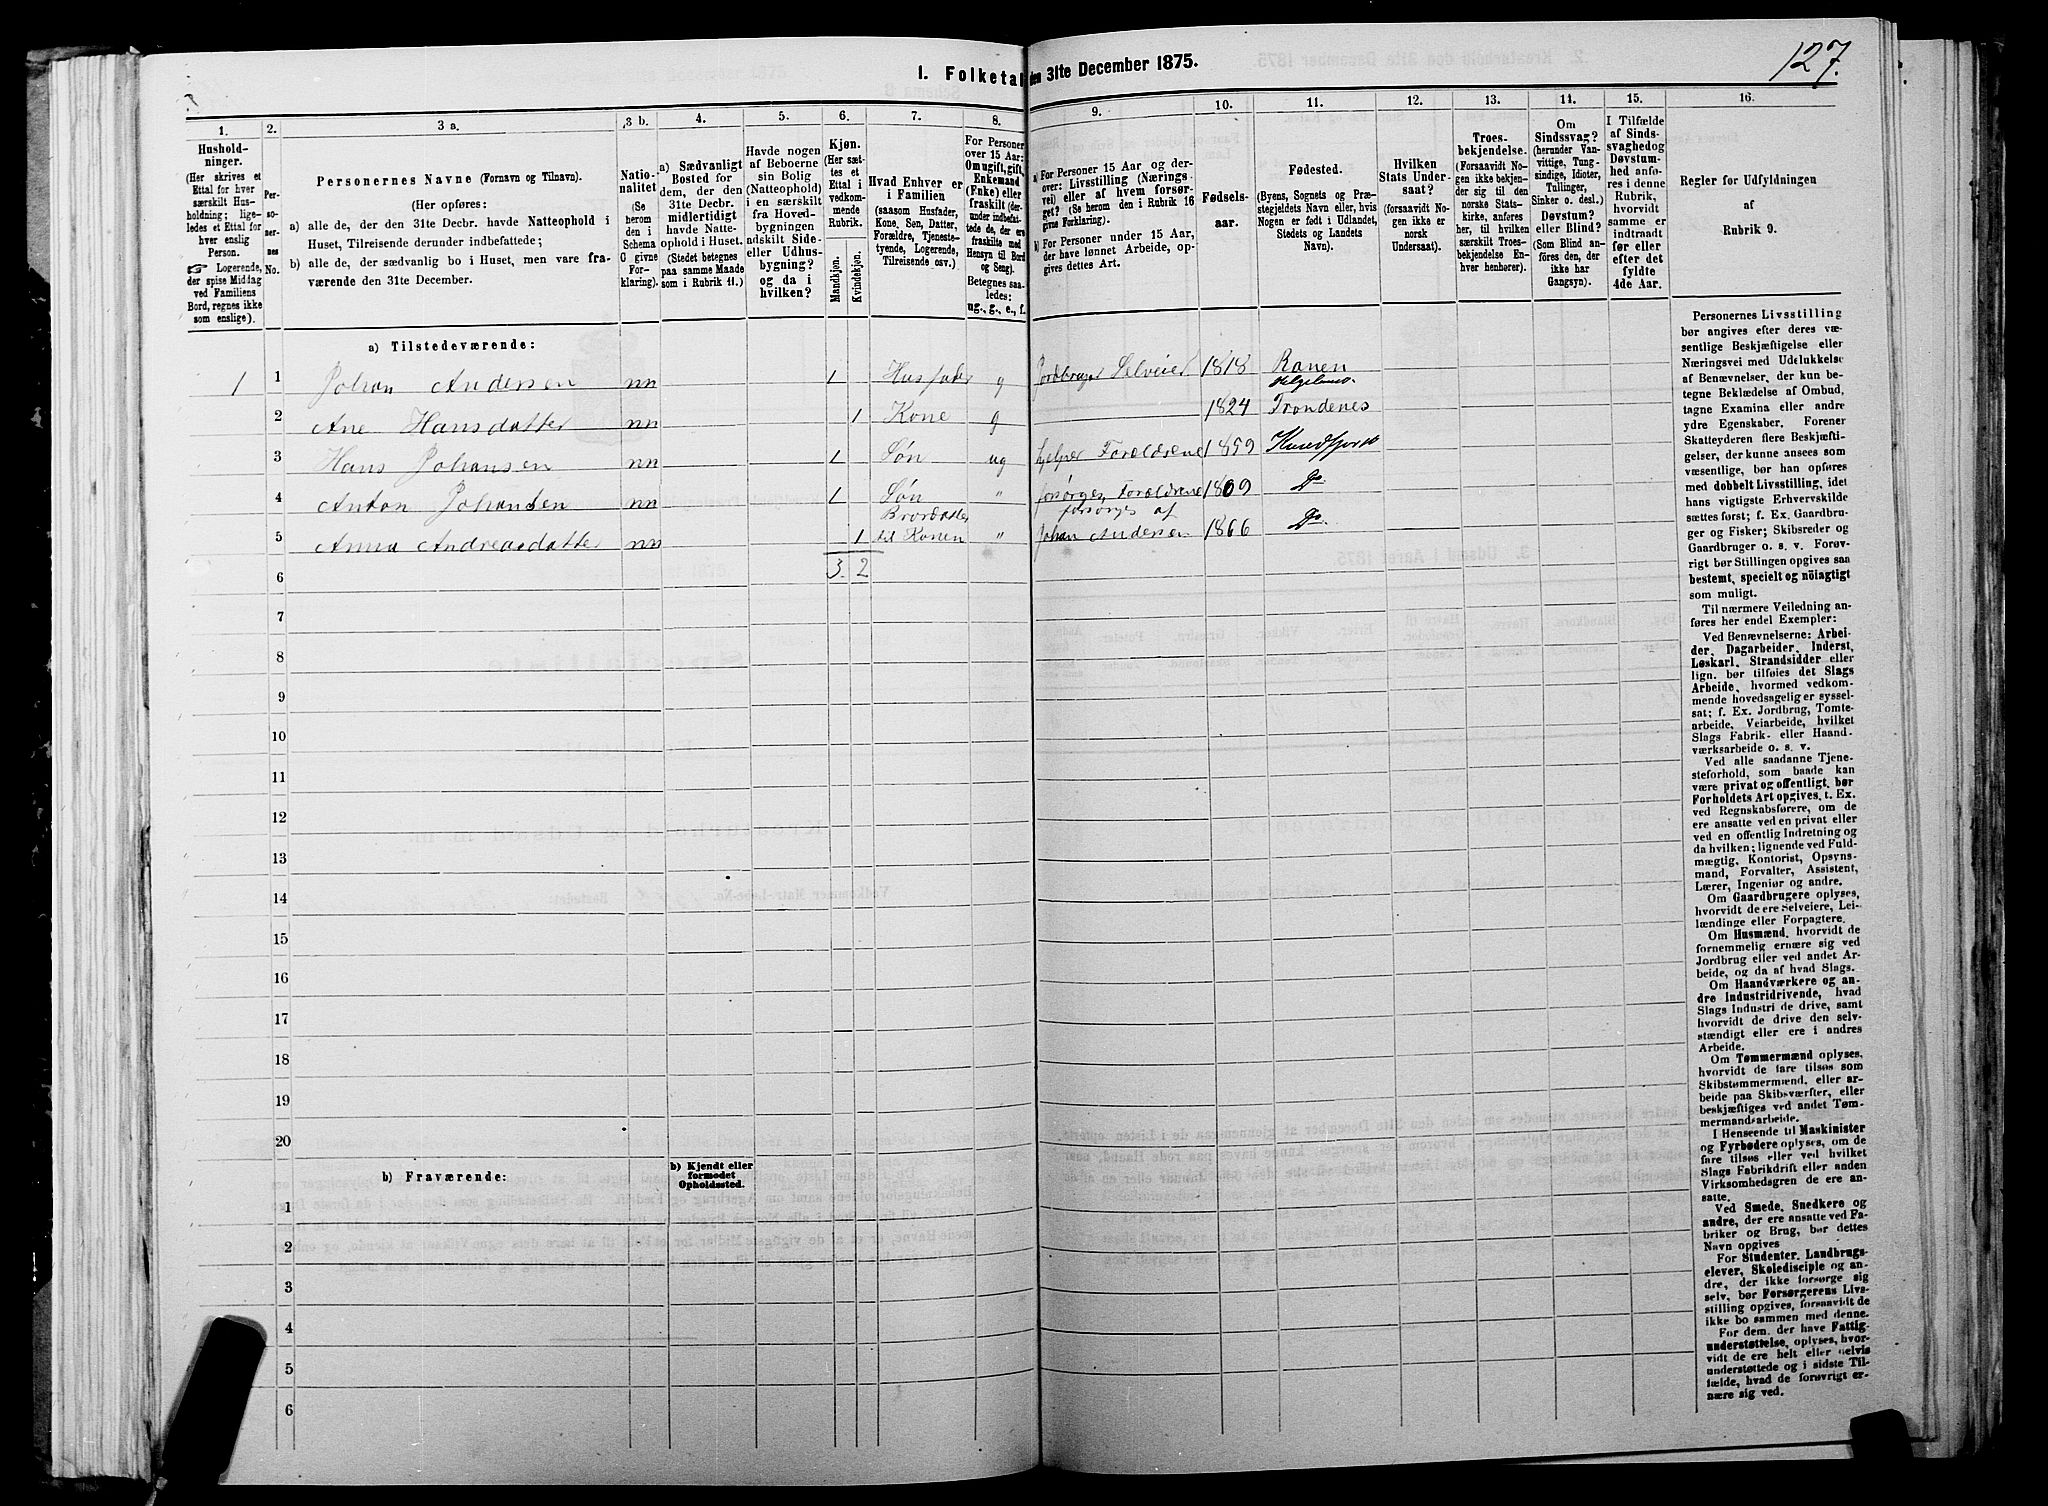 127.
1. Folketal den 31te December 1875.
1.
2.
3 a.
3 b.
4.
5.
6.
7.
8.
9.
10.
11.
12.
13.
14.
15.
16.
Husholdninger.
(Her skrives et
Ettal for hver
særskilt Husholdning; ligeledes
et Ettal for
hver enslig
Person.
☞ Logerende,
der spise Middag
ved Familiens
Bord, regnes ikke
som enslige).
Personernes No.
Personernes Navne (Fornavn og Tilnavn).
(Her opføres:
a) alle de, der den 31te Decbr. havde Natteophold i
Huset, Tilreisende derunder indbefattede;
b) alle de, der sædvanlig bo i Huset, men vare fraværende
den 31te December.
Nationalitet
(Se
herom
den i
Schema
C givne
Forklaring).
a) Sædvanligt
Bosted for
dem, der den
31te Decbr.
midlertidigt
havde Natteophold
i Huset.
(Stedet betegnes
paa samme Maade
som i Rubrik 11.)
Havde nogen
af Beboerne
sin Bolig
(Natteophold)
i en særskilt
fra Hovedbygningen
adskilt Side-
eller Udhusbygning?
og da i
hvilken?
Kjøn.
(Her sættes
et
Ettal i
vedkommende
Rubrik.
Mandkjøn.
Kvindekjøn.
Hvad Enhver er
i Familien
(saasom Husfader,
Kone, Søn, Datter,
Forældre, Tjenestetyende,
Logerende,
Tilreisende osv.)
For Personer
over 15 Aar:
Om ugift, gift,
Enkemand
(Enke) eller
fraskilt (derunder
indbefattede
de, der ere
fraskilte med
Hensyn til Bord
og Seng).
Betegnes saaledes:
ug., g., e., f.
a) For Personer 15 Aar og derover:
Livsstilling (Næringsvei)
eller af hvem forsørget?
(Se herom den i Rubrik 16
givne Forklaring).
b) For Personer under 15 Aar,
der have lønnet Arbeide, opgives
dettes Art.
Fødselsaar.
Fødested.
(Byens, Sognets og Præstegjeldets
Navn eller, hvis
Nogen er født i Udlandet,
Stedets og Landets
Navn).
Hvilken
Stats Undersaat?
(forsaavidt Nogen
ikke er
norsk
Undersaat).
Troesbekjendelse.
(Forsaavidt Nogen
ikke bekjender
sig til den
norske Statskirke,
anføres
her, til hvilken
særskilt Troesbekjendelse
Enhver
henhører).
Om
Sindssvag?
(herunder Vanvittige,
Tungsindige,
Idioter,
Tullinger,
Sinker o. desl.)
Døvstum?
eller Blind?
(Som Blind anføres
den, der
ikke har
Gangsyn).
I Tilfælde
af Sindssvaghed
og
Døvstumhed
anføres
i denne
Rubrik,
hvorvidt
samme er
indtraadt
før eller
efter det
fyldte
4de Aar.
Regler for Udfyldningen
af
Rubrik 9.
a) Tilstedeværende:
1 1 Johan Andersen nn 1 Husfader g Jordbruger Selveier 1818 Ranen Helgeland.
2 Ane Hansdatter nn 1 Kone g 1824 Trondenes
3 Hans Johansen nn 1 Søn ug hjelper Forældrene 1859
4 Anton Johansen nn 1 Søn " forsørges, Forældrene 1869 Do.
5 Anna Andreasdatter nn 1 Brordatter til Konen " forsørges af Johan Andersen 1866 Do.
6 3. 2
7
8
9
10
11
12
13
14
15
16
17
18
19
20
b) Fraværende:
b) Kjendt eller
formodet
Opholdssted.
1
2
3
4
5
6
Personernes Livsstilling
bør angives efter deres væsentlige
Beskjæftigelse eller
Næringsvei med Udelukkelse
af Benævnelser, der kun betegne
Beklædelse af Ombud,
tagne Examina eller andre
ydre Egenskaber. Forener
Skatteyderen flere Beskjæftigelser,
der kunne ansees som
væsentlige, bør han opføres
med dobbelt Livsstilling, idet
hans vigtigste Erhvervskilde
sættes først; f. Ex. Gaardbruger
og Fisker; Skibsreder og
Gaardbruger o. s. v. Forøvrigt
bør Stillingen opgives saa
bestemt, specielt og nöiagtigt
som muligt.
Til nærmere Veiledning anføres
her endel Exempler:
Ved Benævnelserne: Arbeider,
Dagarbeider, Inderst,
Løskarl, Strandsidder eller
lign. bør tilføies det Slags
Arbeide, hvormed vedkommende
hovedsagelig er sysselsat;
f. Ex. Jordbrug, Tomtearbeide,
Veiarbeide, hvilket
Slags Fabrik- eller Haandværksarbeide
o. s. v.
Ved alle saadanne Tjenesteforhold,
som baade kan
være privat og offentligt, bør
Forholdets Art opgives, t. Ex.
ved Regnskabsførere, om de
ere ansatte ved en privat eller
ved en offentlig Indretning og
da hvilken; lignende ved Fuldmægtig,
Kontorist, Opsynsmand,
Forvalter, Assistent,
Lærer, Ingeniør og andre.
Om Gaardbrugere oplyses,
hvorvidt de ere Selveiere, Leilændinge
eller Forpagtere.
Om Husmænd, hvorvidt de
fornemmelig ernære sig ved
Jordbrug eller ved andet Arbeide,
og da af hvad Slags.
Om Haandværkere og andre
Industridrivende, hvad
Slags Industri de drive, samt
hvorvidt de drive den selvstændigt
eller ere i andres
Arbeide.
Om Tømmermænd oplyses,
hvorvidt de fare tilsøs som
Skibstømmermænd, eller arbeide
paa Skibsværfter, eller
beskjæftiges ved andet Tømmermandsarbeide.
I Henseende til Maskinister
og Fyrbødere oplyses, om de
fare tilsøs eller ved hvilket
Slags Fabrikdrift eller anden
Virksomhedsgren de ere ansatte.
Ved Smede, Snedkere og
andre, der ere ansatte ved Fabriker
og Brug, bør dettes
Navn opgives
For Studenter, Landbrugselever,
Skoledisciple og andre,
der ikke forsørge sig
selv, bør Forsørgerens Livsstilling
opgives, forsaavidt de
ikke bo sammen med denne.
For dem, der have Fattigunderstøttelse,
oplyses, hvorvidt
de ere helt eller delvis
understøttede og i sidste Tilfælde,
hvad de forøvrigt ernære
sig ved.